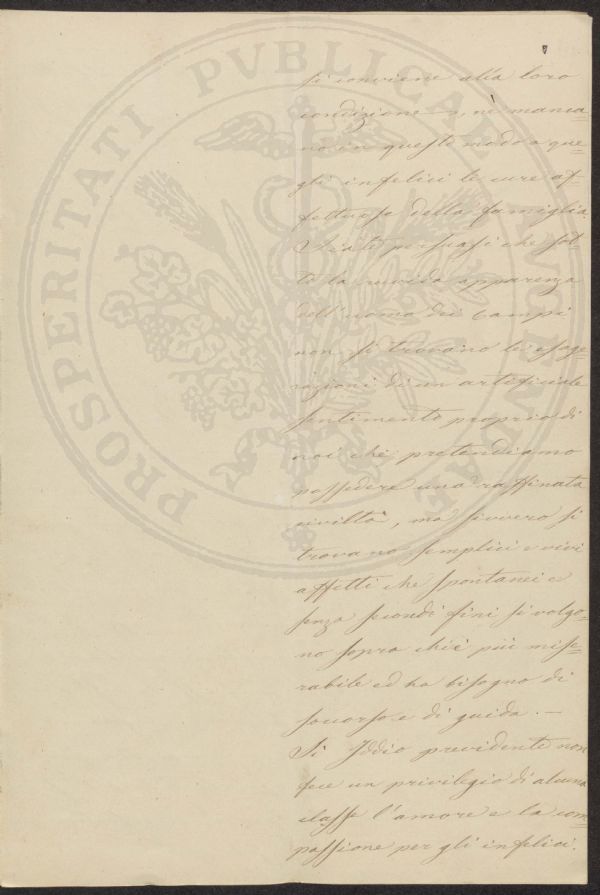 si conviene alla loro
condizione –, nè manca=
no in questo modo a que=
gli infelici le cure af=
fettuose della famiglia.
Siate persuasi che sot=
to la ruvida apparenza
dell'uomo dei campi
non si trovano le esage=
razioni di un artificiale
sentimento proprio di
noi che pretendiamo
possedere una raffinata
civiltà, ma sivvero si
trovano semplici e vivi
affetti che spontanei e
senza secondi fini si volgo=
no sopra chi è più mise=
rabile ed ha bisogno di
soccorso e di guida. –
Sì Iddio previdente non
fece un privilegio di alcuna
classe l'amore e la com=
passione per gli infelici.
PROSPERITATI PVBLICAE AVGENDAE